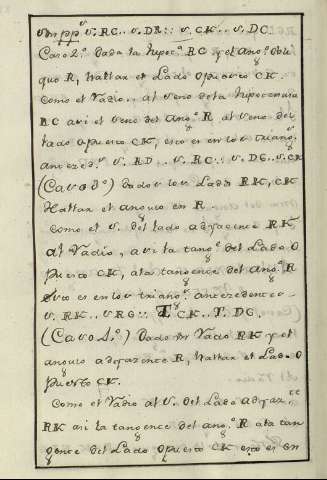 V. RC.. V. DR:: V. CK.. V. DC.
Caso 2.º Dada la hipot.ª RC y el ang.º obli
quo R, hallar el Lado opuesto CK.
Como el Radio.. al seno de la hipotenusa
RC asi el seno del ang.º R al seno del
lado opuesto CK, esto es en los triang.ˢ
anteced.ˢ V. RD.. V. RC:: V. DG.. V. CK
(Caso 3.º) dados los Lados RK, CK
Hallar el angulo en R
Como el S. del lado adyacente RK,
al Radio, asi la tang.ᵉ del Lado o
puesto CK, a la tangente del ang.º R
esto es en los triang.ˢ antecedentes
V. RK.. V. RG:: T. CK.. T. DG.
(Caso 4.º) Dado el Lado RK y el
angulo adyazente R, hallar el Lado o
puesto CK.
Como el Radio al S. del Lado adyaz.ᵗᵉ
RK asi la tangente del ang.º R a la tan
gente del Lado opuesto CK esto es en